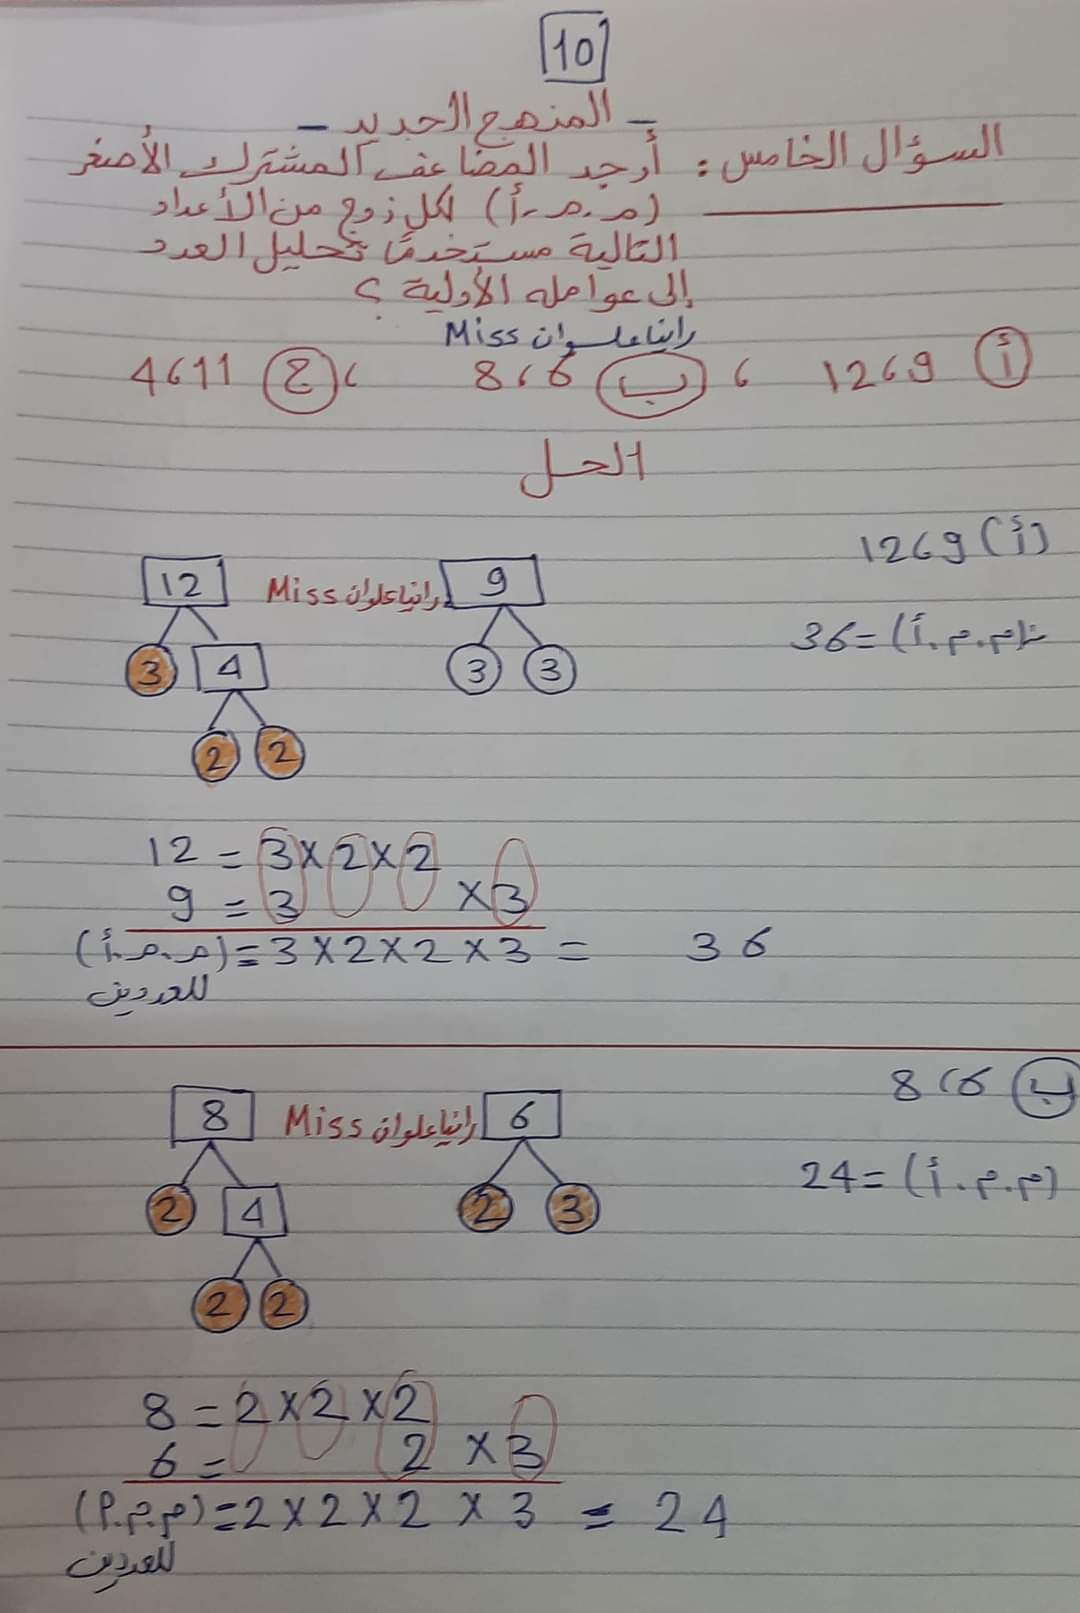 10
- المنهج الجديد -
السؤال الخامس: أوجد المضاعف المشترك الأصغر
(م.م.أ) لكل زوج من الأعداد
التالية مستخدمًا تحليل العدد
إلى عوامله الأولية ؟
Miss رانيا علوان
أ 9، 12 ، ب 6، 8 ، ج 11، 4
الحل
(أ) 9، 12
12 Miss رانيا علوان 9
(م.م.أ) = 36
3 4 3 3
2 2
12 = 3 × 2 × 2
9 = 3 × 3
(م.م.أ) = 3 × 2 × 2 × 3 = 36
للعددين
ب 6، 8
8 Miss رانيا علوان 6
(م.م.أ) = 24
2 4 2 3
2 2
8 = 2 × 2 × 2
6 = 2 × 3
(م.م.أ) = 2 × 2 × 2 × 3 = 24
للعددين